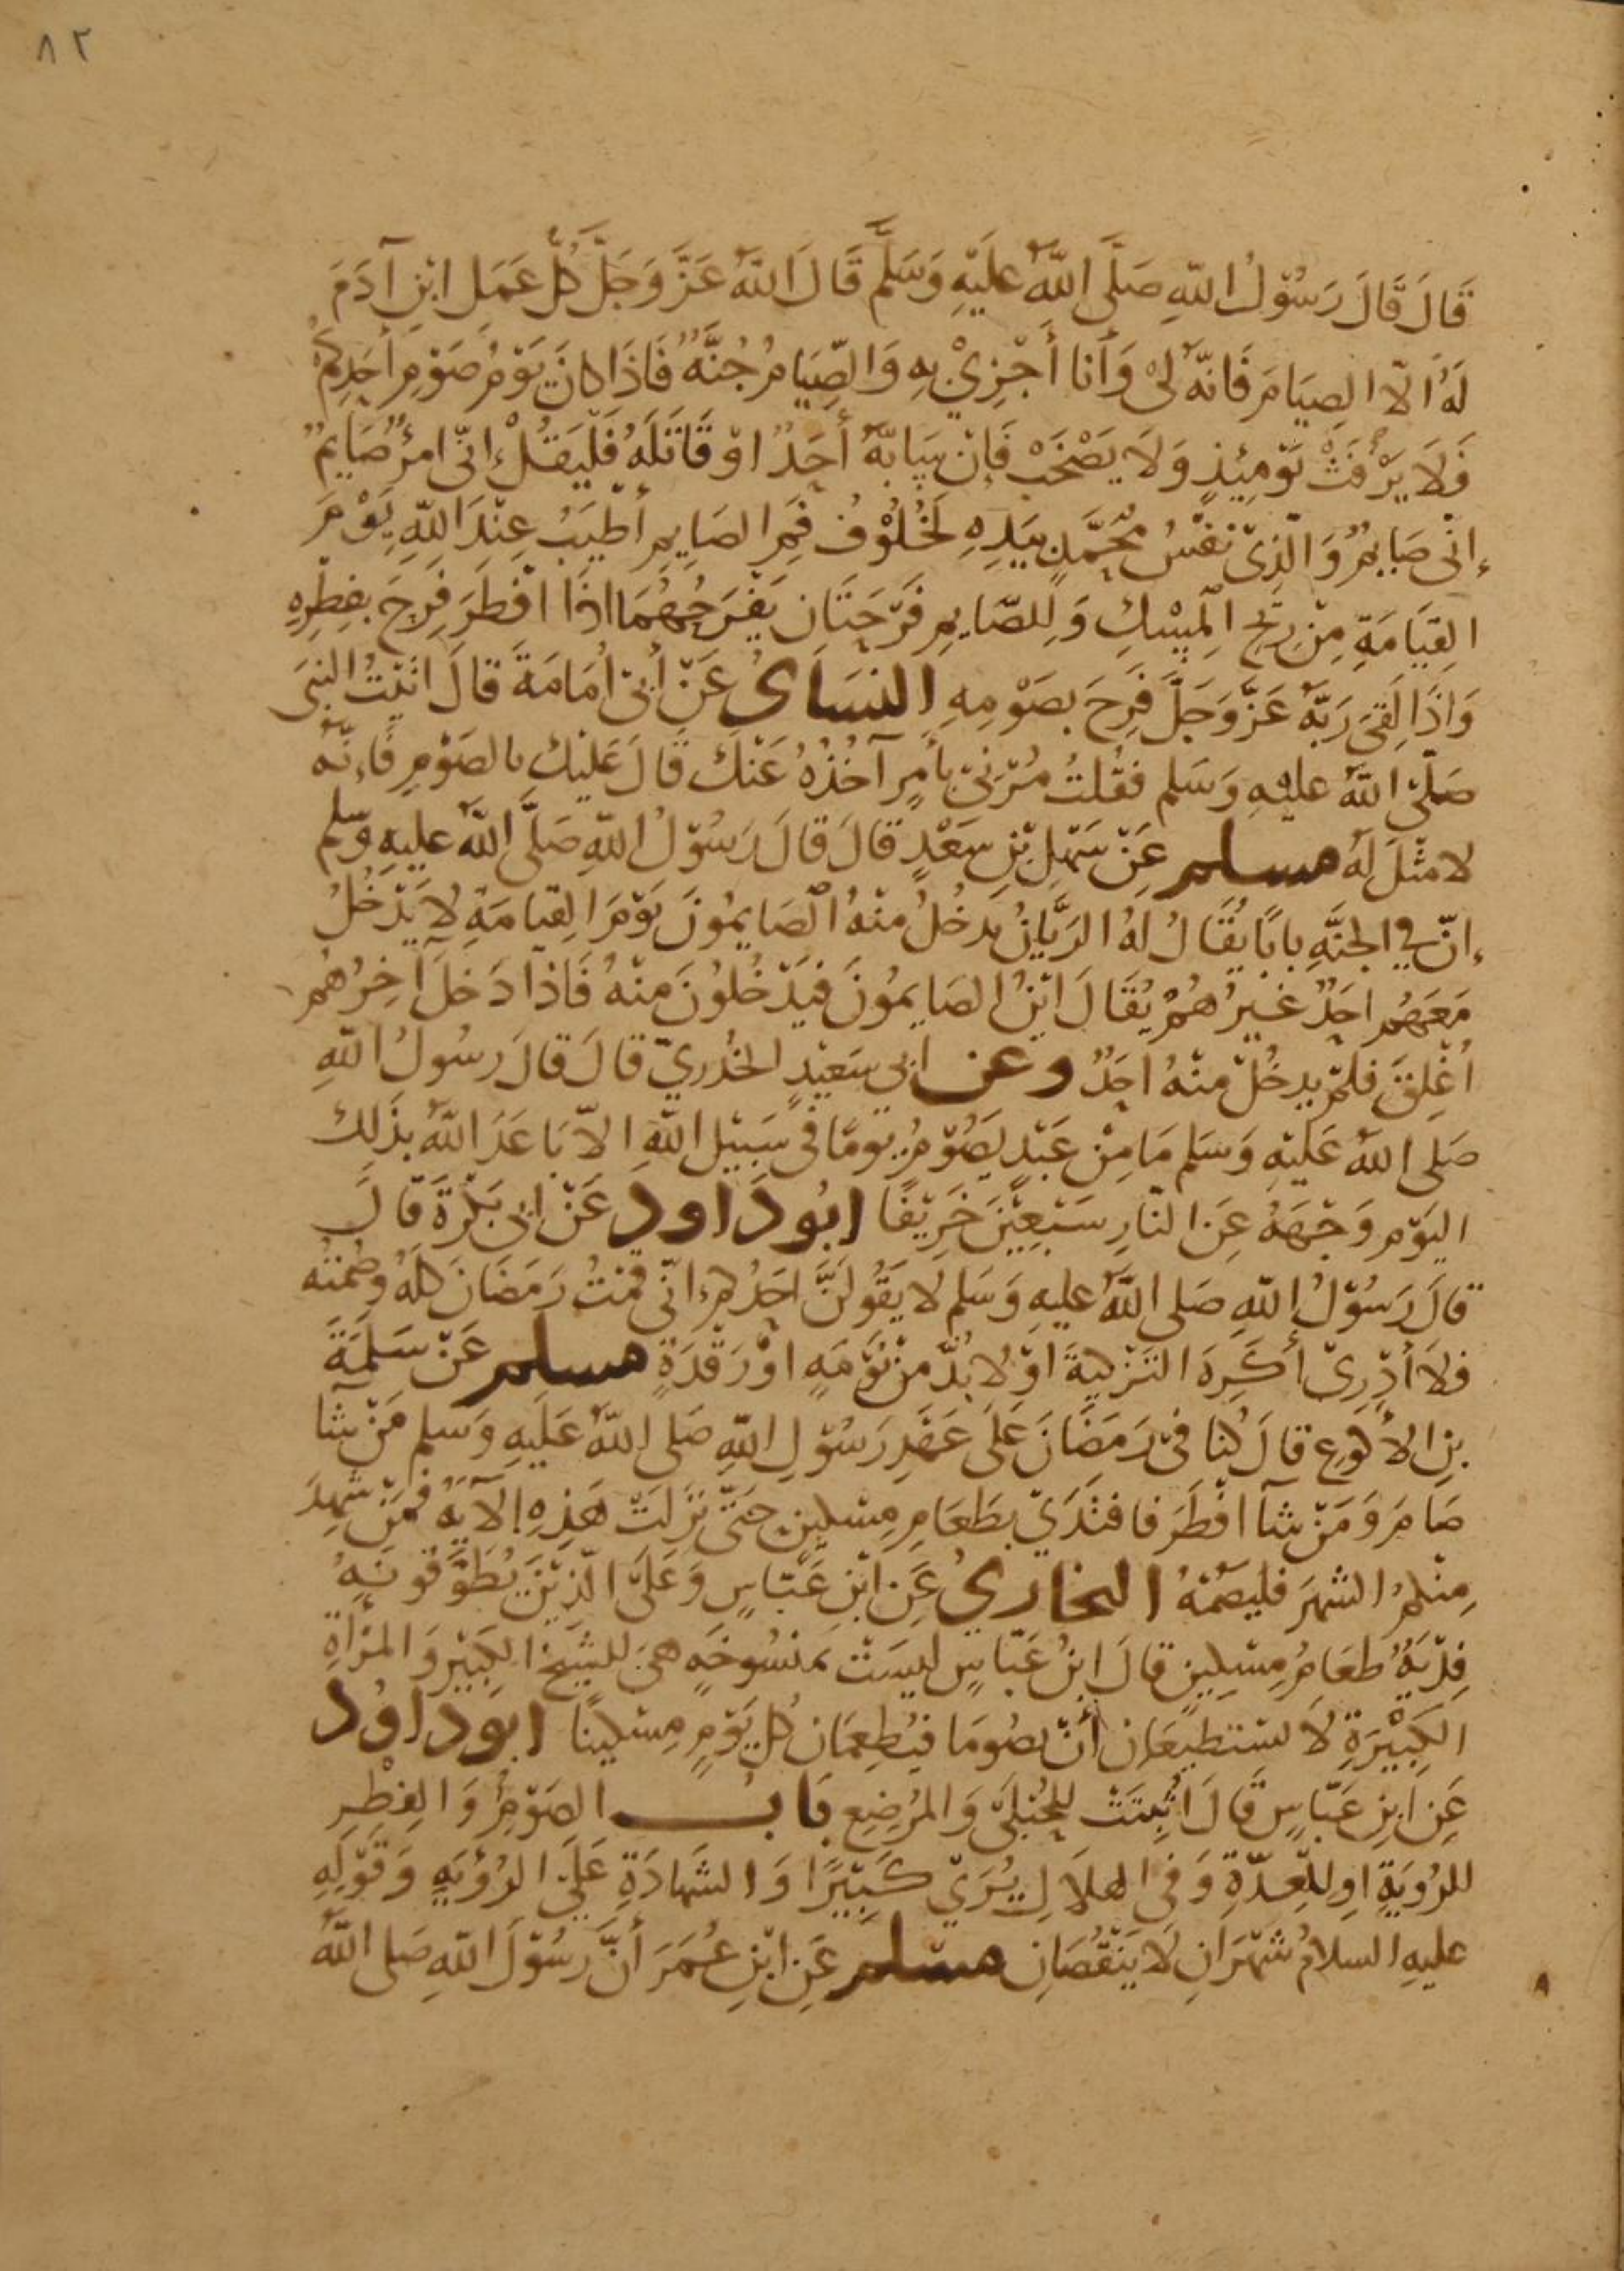 ٨٢
قَالَ قَالَ رَسُوْلُ اللّهِ صَلَّى اللّهُ عَلَيْهِ وَسَلَّمَ قَالَ اللّهُ عَزَّ وَجَلَّ كُلُّ عَمَلِ ابْنِ آدَمَ
لَهُ الّا الصِيَامَ فَانّهُ لىْ وَأَنا أَجْزِيْ بِهِ وَالصِّيَامُ جُنَّةٌ فَاذَا كانَ يَوْمُ صَوْمِ أَحَدِكُمْ
فَلَا يَرْفُثْ يَوْمَئِذٍ وَلَا يَصْخَبْ فَإنْ سَابّهُ أَحَدٌ اوْ قَاتَلَهُ فَلْيَقُلْ إنّى امْرُؤٌ صَايِمٌ
إنّى صَايِمٌ وَالّذِىْ نَفْسُ مُحَمَّدٍ بِيَدِهِ لَخُلُوْفُ فَمِ الصَايِمِ أَطْيَبُ عِنْدَ اللّهِ يَوْمَ
القِيَامَةِ مِنْ رِيْحِ الْمِسْكِ وَلِلصّايِمِ فَرْحَتَانِ يَفْرَحُهُمَا اذَا افْطَرَ فَرِحَ بفِطْرِهِ
وَاذَا لَقِىَ رَبّهُ عَزَّ وَجَلَّ فَرِحَ بصَوْمِهِ النسَاىُ عَنْ أَبىْ أُمَامَةَ قَالَ اتَيْتُ النبىَ
صَلّى اللّهُ عليْهِ وَسَلم فقُلْتُ مُرْنىْ بأَمرٍ آخُذُهُ عَنْكَ قَالَ عَلَيْكَ بالصَوْمِ فَإنّهُ
لا مثْلَ لَهُ مسلم عَنْ سَهْلِ بْنِ سَعْدٍ قَالَ قَالَ رَسُوْلُ اللّهِ صَلَّى اللّهُ عليهِ وسلم
إنّ في الجنَّةِ بابًا يُقَالُ لَهُ الرَيَّانُ يَدخُلُ منْهُ الْصَايمُونَ يَوْمَ القِيَامَةِ لاَ يَدْخُلُ
مَعَهُم احَدٌ غيرُهُمْ يُقَالَ ايْنَ الصَايمُونَ فيَدْخُلُونَ منْهُ فَاذَا دَخَلَ آخِرُهُم
اُغْلِقَ فلمْ يدخُلْ منْهُ احَدٌ وعن ابى سَعيْدٍ الخُدْريّ قالَ قالَ رسُولُ اللّهِ
صَلى اللّهُ عَلَيْهِ وَسَلم مَا مِنْ عَبْدٍ يَصُوْمُ يَومًا فى سَبيْلِ اللّهِ الاّ بَاعَدَ اللّهُ بذَلكَ
اليَوْمِ وَجْهَهُ عَنِ النّارِ سَبْعِيْنَ خَرِيْفًا ابُو دَاود عَنْ ابى بَكْرَةَ قَالَ
قَالَ رَسُوْلُ اللّهِ صَلى اللّهُ عليهِ وَسَلم لا يَقُولَنَّ احَدُكم إنّى قُمْتُ رَمَضَانَ كلهُ وصُمْتُه
فلَا أَدْرِىْ أَكَرِهَ التَزْكيَةَ اوْ لا بُدّ منْ نَوْمَهٍ اوْ رَقْدَةٍ مسلم عَنْ سَلَمَةَ
بنِ الأَكْوعِ قالَ كُنا فىْ رَمَضَانَ عَلَى عَهْدِ رَسُوْلِ اللّهِ صَلى اللّهُ عَلَيهِ وَسلم مَنْ شآ
صَامَ وَمَنْ شآ افْطَرَ فافتَدَىْ بطَعَامِ مِسْكينٍ حَتّى نَزَلَتْ هَذِهِ الآيَةُ فَمَنْ شَهِدَ
مِنْكمُ الشهرَ فليَصُمْهُ البخاريُ عَنِ ابْنِ عَبّاسٍ وَعَلَى الّذِيْنَ يُطَوَّقُونَهُ
فِدْيَةٌ طعَامُ مِسْكِينٍ قالَ ابنُ عَبّاسٍ ليسَتْ بمنْسُوخَهٍ هىَ للشيْخِ الكَبيْرِ وَالمرْأَةِ
الكَبيْرَةِ لاَ تستطيعَانِ أَنْ يصُومَا فيُطعِمَانِ كُلّ يَوْمٍ مسْكينًا ابُو داوُد
عَنِ ابنِ عَبّاسٍ قالَ اُثْبتَتْ للحُبْلَىْ وَالمُرْضِعِ بَابُ الصَوْمُ وَالفِطْرِ
للرُوْيَةِ اوِ للْعِدّةِ وَفى الهلَالِ يُرَىْ كَبيْرًا وَالشهادَةِ عَلَىْ الرُؤْيَهِ وَقَوْلِهِ
عليهِ السلامُ شهْرَانِ لَا يَنْقُصَانِ مسلم عَنِ ابْنِ عُمَرَ أَنَّ رَسُوْلَ اللّهِ صَلى اللّهُ